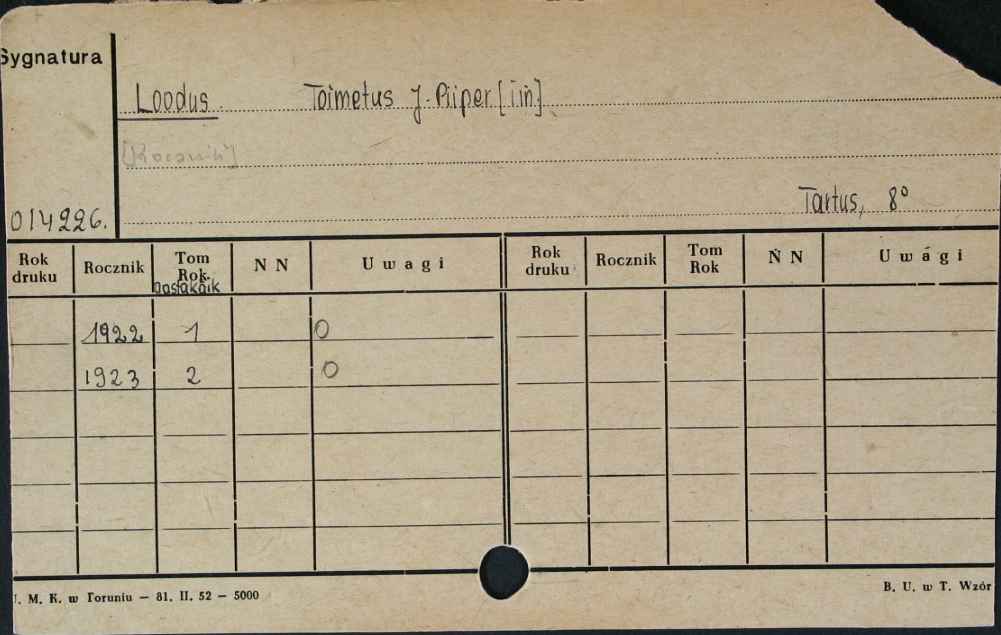 Sygnatura
Loodus Toimetus J. Piiper [i in]
[Rocznik]
Tartus, 8°
014226.
Rok druku Rocznik Tom Rok N N Uwagi Rok druku Rocznik Tom Rok N N Uwagi
aastakäik
1922 1 0
1923 2 0
U. M. K. w Toruniu — 81. II. 52 — 5000 B. U. w T. Wzór